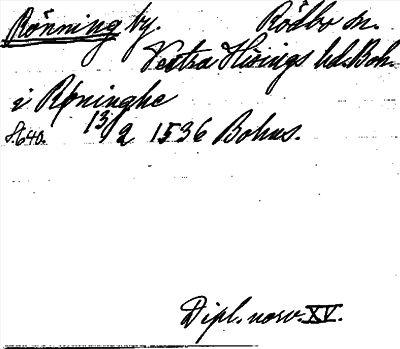 Rönning by. Rödbo sn.
Västra Hisings hd. Boh.
i Röninghe
S. 640. 13/2 1536 Bohus.
Dipl. norv. XV.